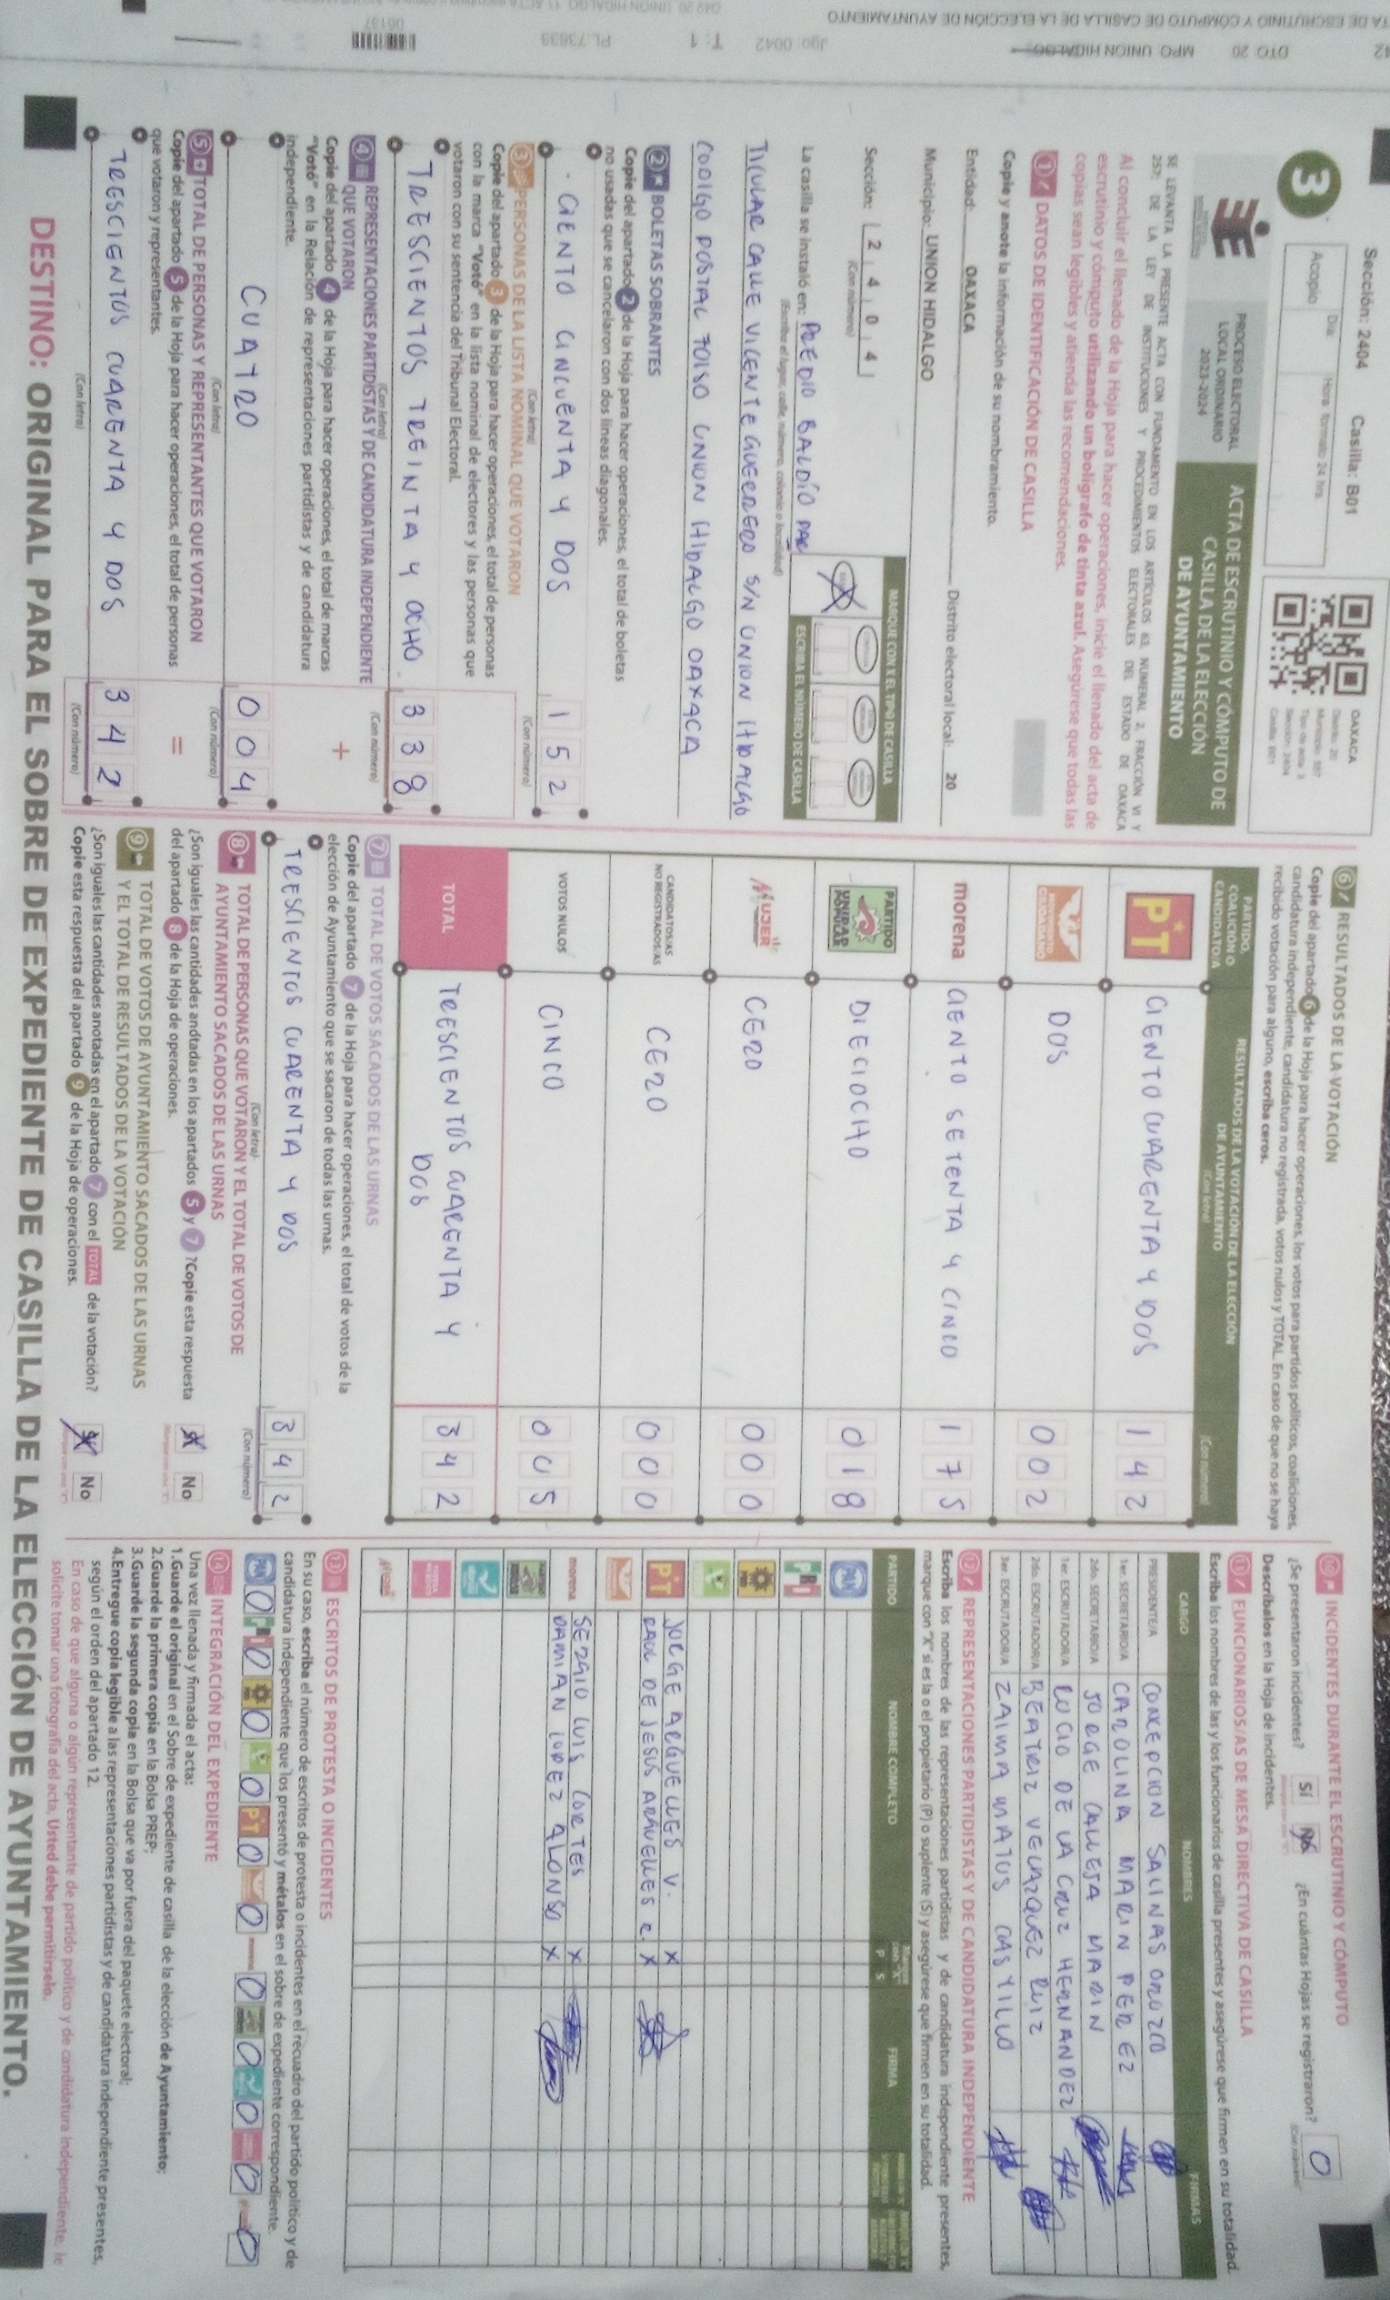 Sección: 2404 Casilla: B01
3
Acopio
Día:
Hora formato 24 hrs.
OAXACA
PROCESO ELECTORAL
LOCAL ORDINARIO
2023-2024
ACTA DE ESCRUTINIO Y CÓMPUTO DE
CASILLA DE LA ELECCIÓN
DE AYUNTAMIENTO
SE LEVANTA LA PRESENTE ACTA CON FUNDAMENTO EN LOS ARTÍCULOS 63, NUMERAL 2, FRACCIÓN VI Y
257, DE LA LEY DE INSTITUCIONES Y PROCEDIMIENTOS ELECTORALES DEL ESTADO DE OAXACA
Al concluir el llenado de la Hoja para hacer operaciones, inicie el llenado del acta de
escrutinio y cómputo utilizando un bolígrafo de tinta azul. Asegúrese que todas las
copias sean legibles y atienda las recomendaciones.
1 DATOS DE IDENTIFICACIÓN DE CASILLA
Copie y anote la información de su nombramiento.
Entidad: OAXACA Distrito electoral local: 20
Municipio: UNION HIDALGO
Sección: 2 4 0 4
(Con número)
MARQUE CON X EL TIPO DE CASILLA
ESCRIBA EL NÚMERO DE CASILLA
La casilla se instaló en: PREDIO BALDÍO PAR
(Escriba el lugar, calle, número, colonia o localidad)
TICULAR CALLE VICENTE GUERRERO S/N UNION HIDALGO
CODIGO POSTAL 70150 UNION HIDALGO OAXACA
2 BOLETAS SOBRANTES
Copie del apartado 2 de la Hoja para hacer operaciones, el total de boletas
no usadas que se cancelaron con dos líneas diagonales.
CIENTO CINCUENTA Y DOS 1 5 2
(Con letra) (Con número)
3 PERSONAS DE LA LISTA NOMINAL QUE VOTARON
Copie del apartado 3 de la Hoja para hacer operaciones, el total de personas
con la marca "Votó" en la lista nominal de electores y las personas que
votaron con su sentencia del Tribunal Electoral.
TRESCIENTOS TREINTA Y OCHO 3 3 8
(Con letra) (Con número)
4 REPRESENTACIONES PARTIDISTAS Y DE CANDIDATURA INDEPENDIENTE
QUE VOTARON
Copie del apartado 4 de la Hoja para hacer operaciones, el total de marcas
"Votó" en la Relación de representaciones partidistas y de candidatura
independiente.
+
CUATRO 0 0 4
(Con letra) (Con número)
5 TOTAL DE PERSONAS Y REPRESENTANTES QUE VOTARON
Copie del apartado 5 de la Hoja para hacer operaciones, el total de personas
que votaron y representantes.
=
TRESCIENTOS CUARENTA Y DOS 3 4 2
(Con letra) (Con número)
6 RESULTADOS DE LA VOTACIÓN
Copie del apartado 6 de la Hoja para hacer operaciones, los votos para partidos políticos, coaliciones,
candidatura independiente, candidatura no registrada, votos nulos y TOTAL. En caso de que no se haya
recibido votación para alguno, escriba ceros.
PARTIDO,
COALICIÓN O
CANDIDATO/A
RESULTADOS DE LA VOTACIÓN DE LA ELECCIÓN
DE AYUNTAMIENTO
(Con letra) (Con número)
PT CIENTO CUARENTA Y DOS 1 4 2
DOS 0 0 2
morena CIENTO SETENTA Y CINCO 1 7 5
PARTIDO UNIDAD POPULAR DIECIOCHO 0 1 8
MUJER CERO 0 0 0
CANDIDATOS/AS
NO REGISTRADOS/AS CERO 0 0 0
VOTOS NULOS CINCO 0 0 5
TOTAL TRESCIENTOS CUARENTA Y
DOS 3 4 2
7 TOTAL DE VOTOS SACADOS DE LAS URNAS
Copie del apartado 7 de la Hoja para hacer operaciones, el total de votos de la
elección de Ayuntamiento que se sacaron de todas las urnas.
TRESCIENTOS CUARENTA Y DOS 3 4 2
(Con letra) (Con número)
8 TOTAL DE PERSONAS QUE VOTARON Y EL TOTAL DE VOTOS DE
AYUNTAMIENTO SACADOS DE LAS URNAS
¿Son iguales las cantidades anotadas en los apartados 5 y 7 ? Copie esta respuesta
del apartado 8 de la Hoja de operaciones.
No
9 TOTAL DE VOTOS DE AYUNTAMIENTO SACADOS DE LAS URNAS
Y EL TOTAL DE RESULTADOS DE LA VOTACIÓN
¿Son iguales las cantidades anotadas en el apartado 7 con el TOTAL de la votación?
Copie esta respuesta del apartado 9 de la Hoja de operaciones.
No
10 INCIDENTES DURANTE EL ESCRUTINIO Y CÓMPUTO
¿Se presentaron incidentes? Sí No ¿En cuántas Hojas se registraron? 0
Descríbalos en la Hoja de incidentes.
11 FUNCIONARIOS/AS DE MESA DIRECTIVA DE CASILLA
Escriba los nombres de las y los funcionarios de casilla presentes y asegúrese que firmen en su totalidad.
CARGO NOMBRES FIRMAS
PRESIDENTE/A CONCEPCION SALINAS OROZCO
1er. SECRETARIO/A CAROLINA MARIN PEREZ
2do. SECRETARIO/A JORGE CALLEJA MARIN
1er. ESCRUTADOR/A ROCIO DE LA CRUZ HERNANDEZ
2do. ESCRUTADOR/A BEATRIZ VELAZQUEZ RUIZ
3er. ESCRUTADOR/A ZAIMA MATUS CASTILLO
12 REPRESENTACIONES PARTIDISTAS Y DE CANDIDATURA INDEPENDIENTE
Escriba los nombres de las representaciones partidistas y de candidatura independiente presentes,
marque con "X" si es la o el propietario (P) o suplente (S) y asegúrese que firmen en su totalidad.
PARTIDO NOMBRE COMPLETO P S FIRMA
PAN
PRI
PT JORGE ARGUELLES V. X
RAUL DE JESUS ARGUELLES C. X
morena SERGIO LUIS CORTES X
DAMIAN LOPEZ ALONSO X
13 ESCRITOS DE PROTESTA O INCIDENTES
En su caso, escriba el número de escritos de protesta o incidentes en el recuadro del partido político y de
candidatura independiente que los presentó y métalos en el sobre de expediente correspondiente.
PAN 0 PRI 0 0 0 PT 0 0 0 0 0 0 0
14 INTEGRACIÓN DEL EXPEDIENTE
Una vez llenada y firmada el acta:
1.Guarde el original en el Sobre de expediente de casilla de la elección de Ayuntamiento;
2.Guarde la primera copia en la Bolsa PREP;
3.Guarde la segunda copia en la Bolsa que va por fuera del paquete electoral;
4.Entregue copia legible a las representaciones partidistas y de candidatura independiente presentes,
según el orden del apartado 12.
En caso de que alguna o algún representante de partido político y de candidatura independiente, le
solicite tomar una fotografía del acta, Usted debe permitírselo.
DESTINO: ORIGINAL PARA EL SOBRE DE EXPEDIENTE DE CASILLA DE LA ELECCIÓN DE AYUNTAMIENTO.